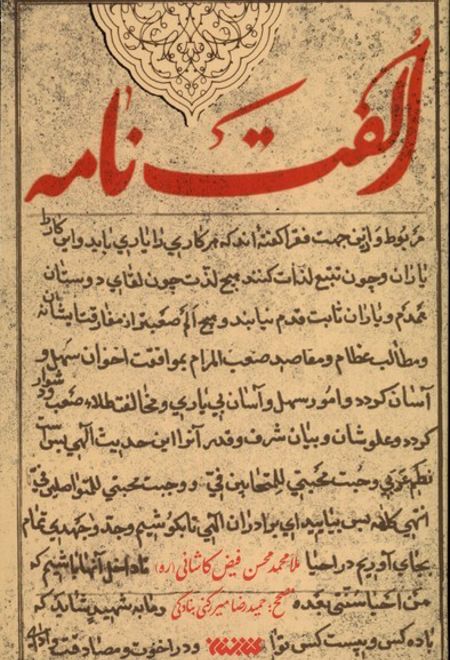 الفت نامه
مربوط و ازین جهت فقرا کفته اند که هر کاری را یاری باید و این کار را
یاران و چون تتبع لذات کنند هیچ لذت چون لقای دوستان
همدم و یاران ثابت قدم نیابند و هیچ الم صعبتر از مفارقت ایشان نه
و مطالب عظام و مقاصد صعب المرام بموافقت اخوان سهل و
آسان کردد و امور سهل و آسان بی یاری و مخالفت صعب و دشوار
کردد و علو شان و بیان شرف و قدر آنرا این حدیث الهی بس است
وجبت محبتی للمتحابین فی و وجبت محبتی للمتواصلین فی
انتهی کلامه پس بیایید ای برادران الهی تا بکوشیم و جد و جهدی تمام
بجای آوریم در احیا ملا محمد محسن فیض کاشانی (ره) تا داخل آنها باشیم که
من احیا سنتی مصحح: حمیدرضا میرکنی بنادکی شهید شاید که
یا ده کس و بیست کس و در اخوت و مصادقت و